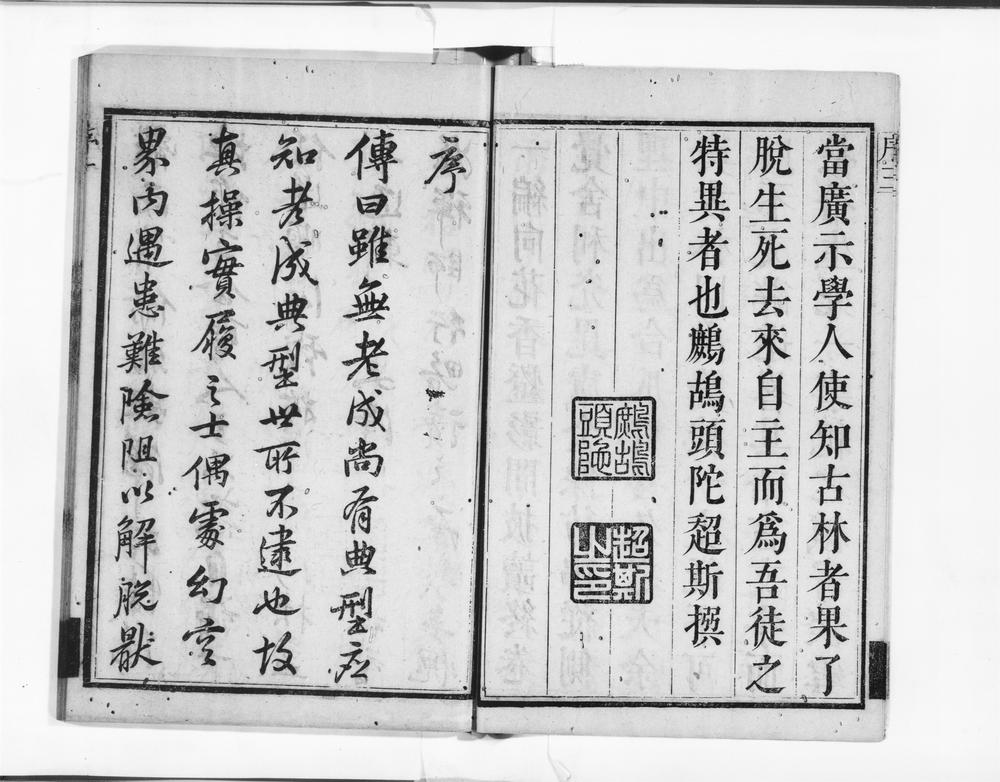 序三
當廣示學人使知古林者果了
脫生死去來自主而爲吾徒之
特異者也鷓鴣頭陀超斯撰
鷓鴣頭陀
超斯之印
序
傳曰雖無老成尚有典型
知老成典型世所不逮也故
真操實履之士偶處幻空
界內遇患難險阻以解脫
序一